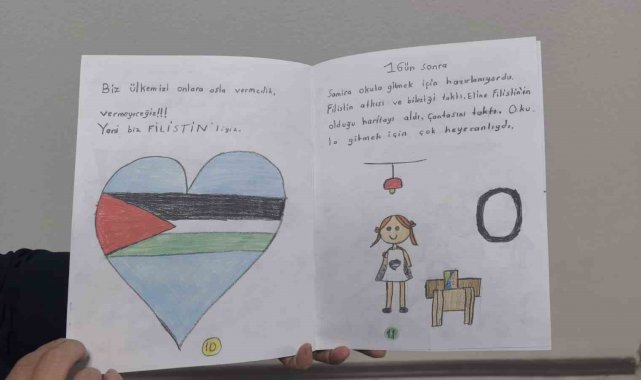 Biz ülkemizi onlara asla vermedik,
vermeyeceğiz!!!
Yani biz FİLİSTİN'liyiz.
10
1 Gün sonra
Samira okula gitmek için hazırlanıyordu.
Filistin atkısı ve bilekliği taktı. Eline Filistin'in
olduğu haritayı aldı. Çantasını taktı. Oku-
la gitmek için çok heyecanlıydı.
11